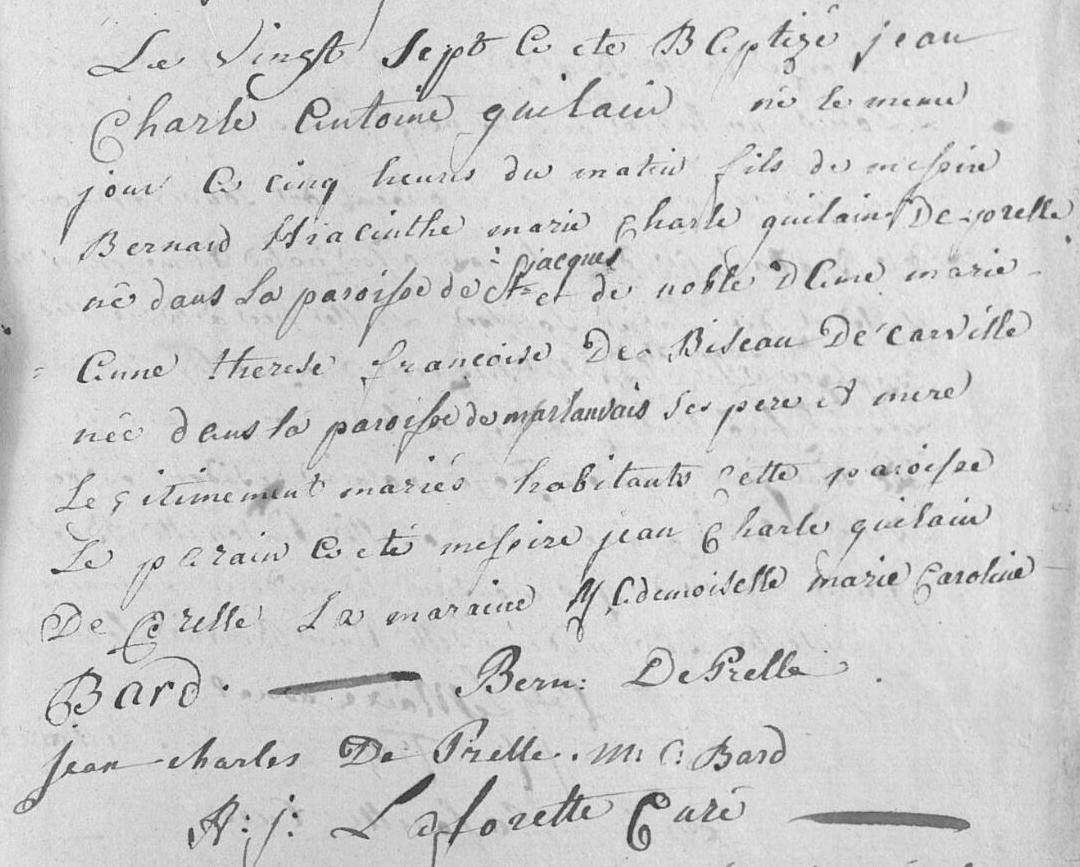 Le vingt sept a ete Baptizé jean
Charle Antoine guilain né le meme
jour a cinq heures du matin fils de messire
Bernard Hiacinthe marie Charle guilain De prelle
né dans la paroisse de St jacques et de noble Dame marie
Anne therese françoise De Biseau De carville
née dans la paroisse de marlanvais ses pere et mere
Legitimement mariés habitants cette paroisse
Le parain a eté messire jean Charle guilain
De Prelle La maraine Mademoiselle marie Caroline
Bard. Bern: De Prelle.
jean charles De Prelle. M: C: Bard
A: j: Laforette Curé